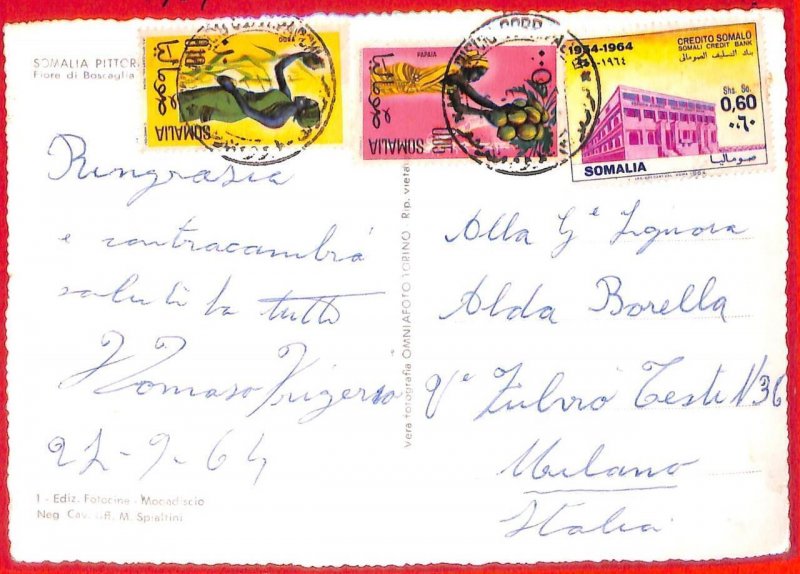 SOMALIA PITTOR
Fiore di Boscaglia
SOMALIA
PAPAIA
SOMALIA
1954-1964
١٩٦٤
CREDITO SOMALO
SOMALI CREDIT BANK
بنك التسليف الصومالي
Shs. So.
0,60
٠,٦٠
SOMALIA
صوماليا
Ringrazia
e contraccambia
saluti la tutti
Tomaso Frigerio
22-9-64
1 - Ediz. Fotocine - Mogadiscio
Neg. Cav. M. Spialtini
vera fotografia OMNIAFOTO TORINO Rip. vietat
Alla G^e Signora
Alda Borella
V^e Fulvio Testi N 36
Milano
Italia